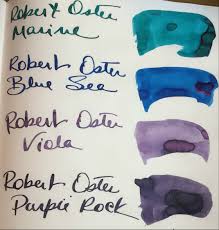 Robert Oster
Marine
Robert Oster
Blue Sea
Robert Oster
Viola
Robert Oster
Purple Rock